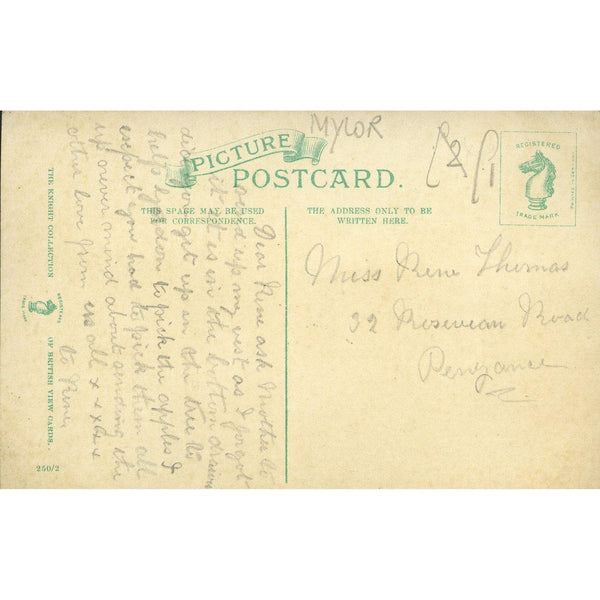 MYLOR
PICTURE
POSTCARD.
REGISTERED
TRADE MARK
THIS SPACE MAY BE USED
FOR CORRESPONDENCE.
THE ADDRESS ONLY TO BE
WRITTEN HERE.
Dear Rene ask Mother to
send up my vest as I forgot
it it is in the bottom drawer
did you get up in the tree to
help to pick the apples I
expect you had to pick them all
up never mind about sending the
other love from us all x x x x x
to Rene
Miss Rene Thomas
32 Rosevean Road
Penzance
THE KNIGHT COLLECTION
REGISTERED
TRADE MARK
OF BRITISH VIEW CARDS.
250/2